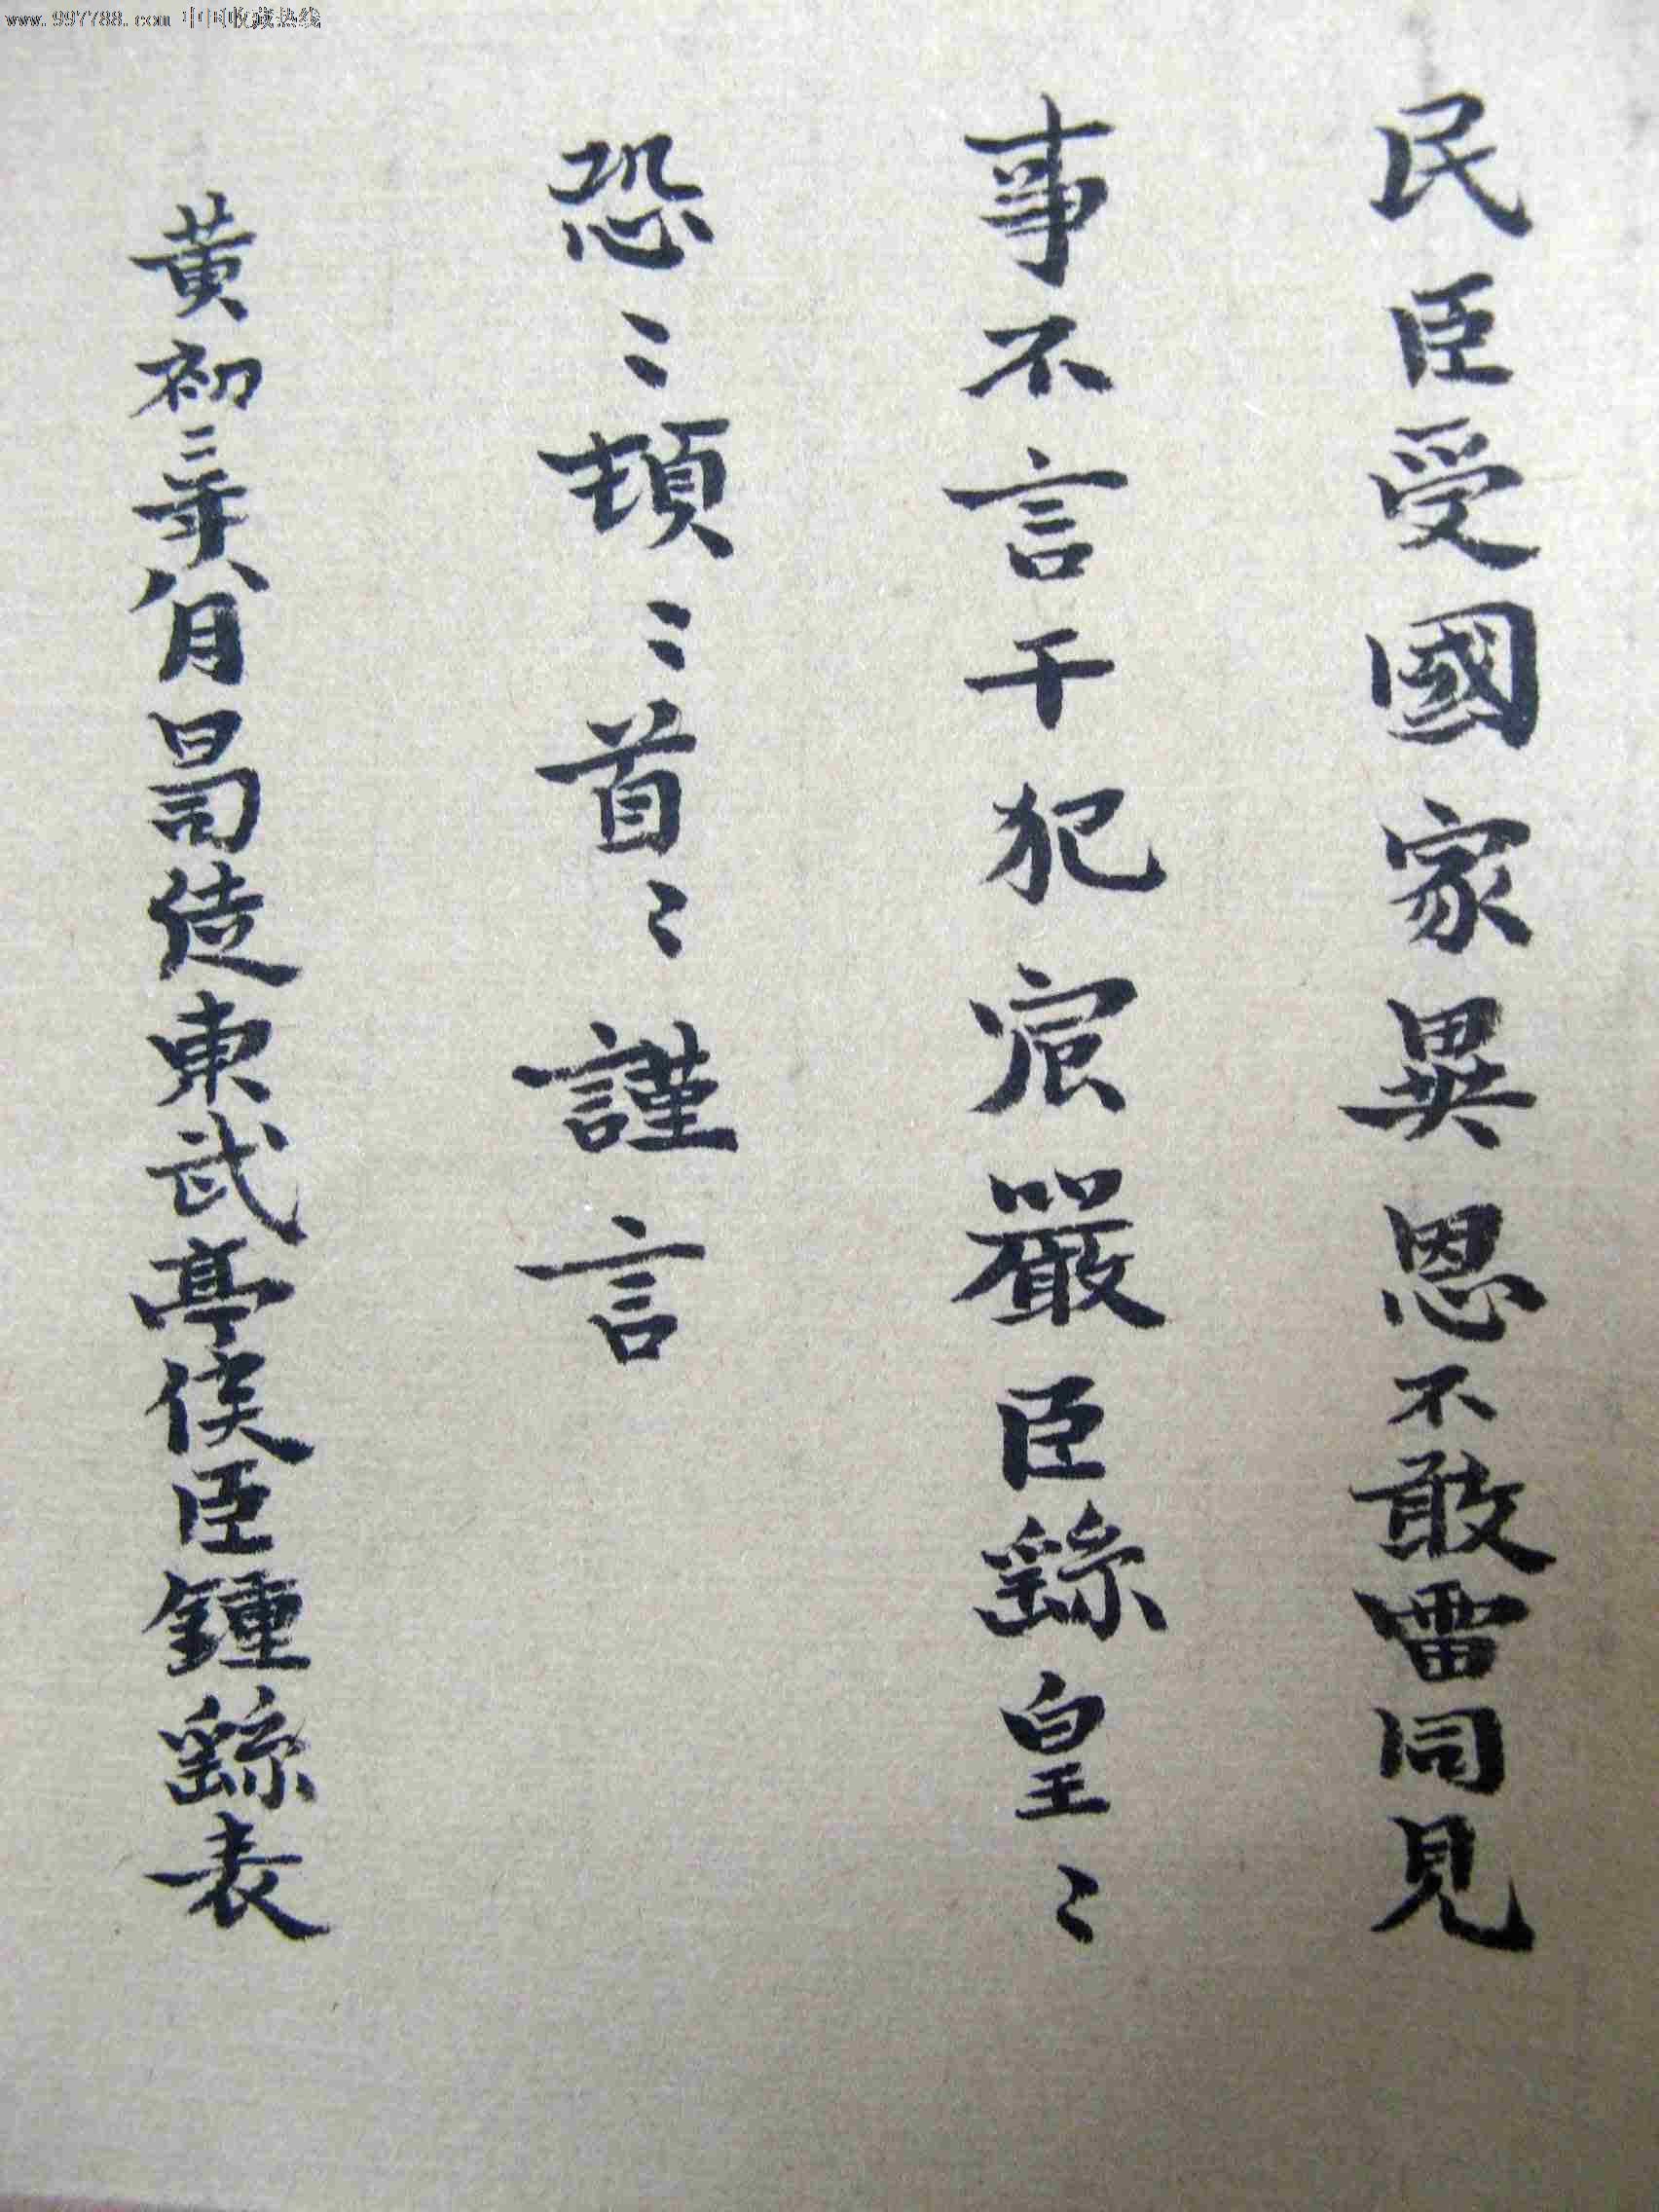 www.997788.com 中国收藏热线
民臣受國家異恩不敢雷同見
事不言干犯宸嚴臣繇皇〻
恐〻頓〻首〻謹言
黃初二年八月日司徒東武亭侯臣鍾繇表